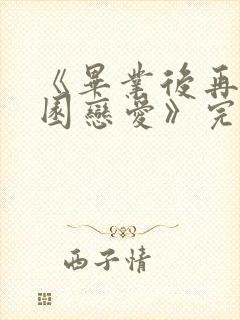 《畢業後再
園戀愛》完
西子情